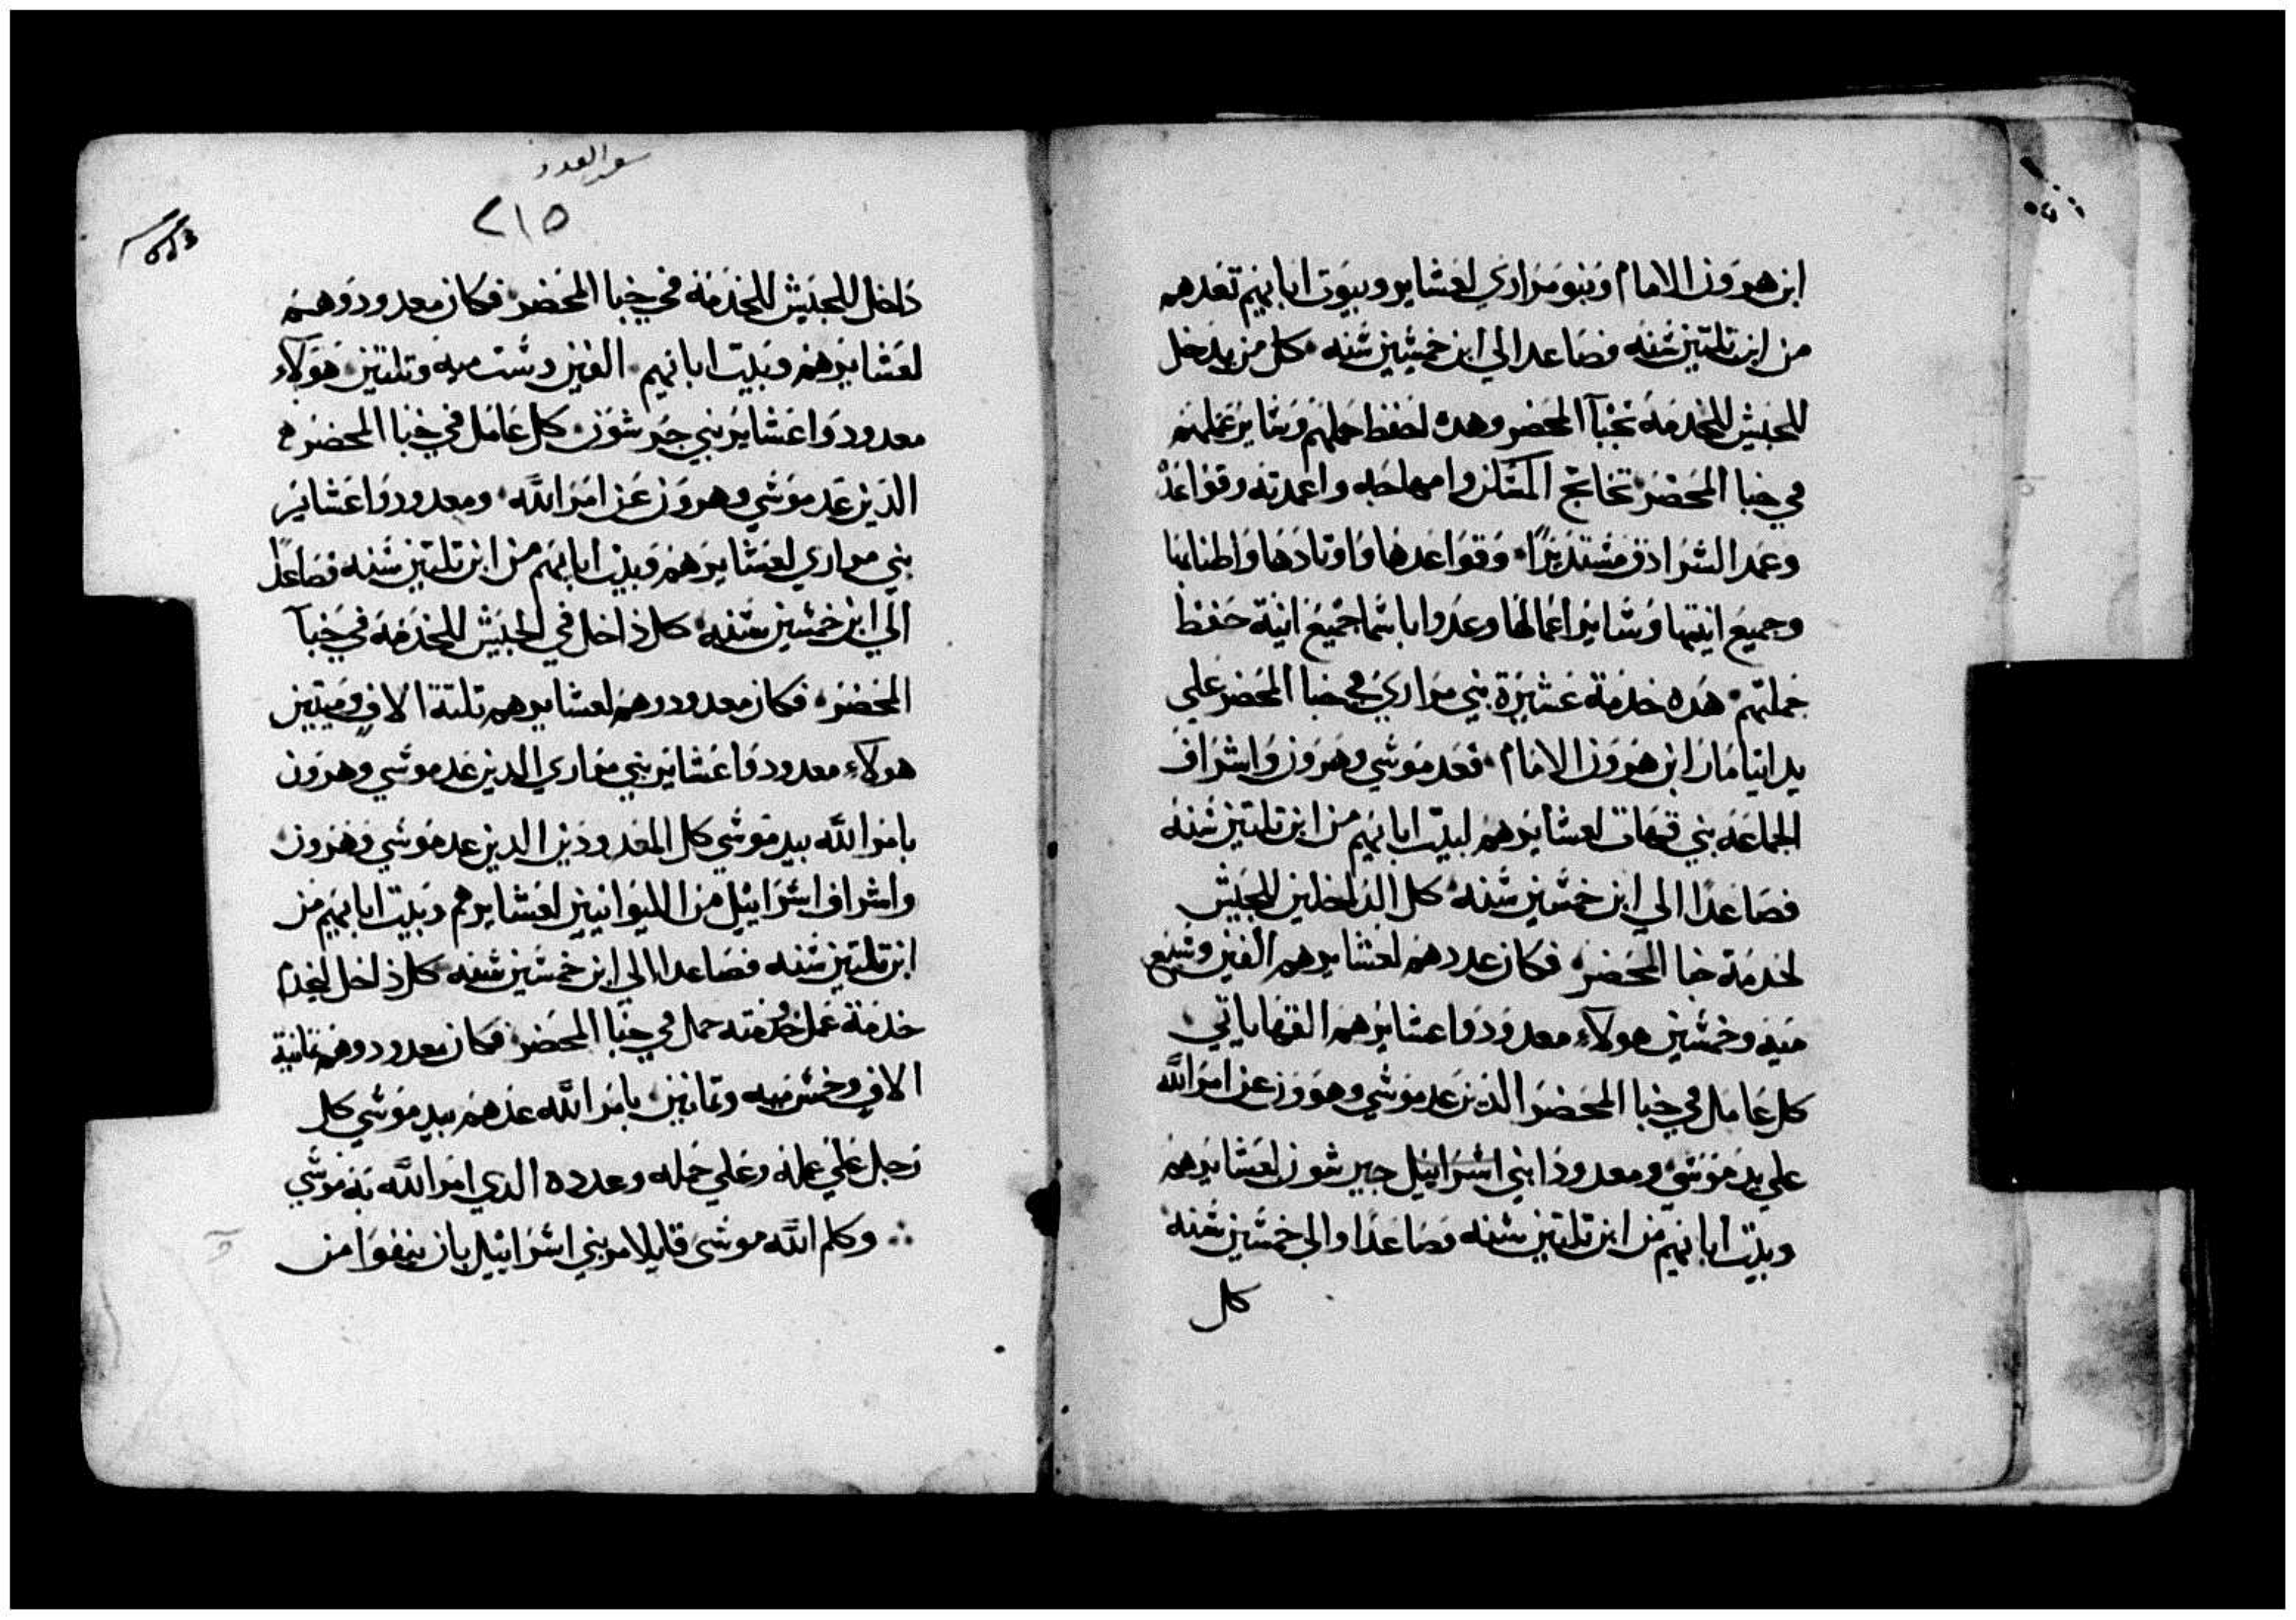 ابن هرون الامام وبنو مراري لعشاير وبيوت ابايهم تعدهم
من ابن تلتين سنه فصاعدا الي ابن خمسين سنه كل من يدخل
للجيش للخدمة بخبآ المحضر وهده لحفظ حملهم وساير عملهم
في خبا المحضر تخاتج المسكن وامهاجه واعمدته وقواعد
وعمد السرادق مستديرًا وقواعدها واوتادها واطنابها
وجميع انيتها وساير اعمالها وعدوا باسما جميع انية حفظ
حملهم هده خدمة عشيرة بني مراري في خبا المحضر علي
يد ايتامار ابن هرون الامام فعد موسي وهرون واشراف
الجماعه بني قهات لعشايرهم لبيت ابايهم من ابن تلتين سنه
فصاعدًا الي ابن خمسين سنه كل الداخلين للجيش
لخدمة خبا المحضر فكان عددهم لعشايرهم الفين وسبع
ميه وخمسين هولاء معدودوا عشايرهم القهاياتي
كل عامل في خبا المحضر الدين عد موسي وهرون عن امر الله
علي يد موسي ومعدودا بني اسراييل جيرشون لعشايرهم
وبيت ابايهم من ابن تلتين سنه فصاعدًا والي خمسين سنه
كل
سفر العدد
٢١٥
داخل للجيش للخدمة في خبا المحضر فكان معدودوهم
لعشايرهم وبيت ابايهم الفين وست ميه وتلتين هولاء
معدودوا عشاير بني جرشون كل عامل في خبا المحضر
الدين عد موسي وهرون عن امر الله ومعدودوا عشاير
بني مراري لعشايرهم وبيت ابايهم من ابن تلتين سنه فصاعدًا
الي ابن خمسين سنه كل داخل في الجيش للخدمة في خبآ
المحضر فكان معدودوهم لعشايرهم تلتة الاف وميتين
هولاء معدودوا عشاير بني مراري الدين عد موسي وهرون
بامر الله بيد موسي كل المعدودين الدين عد موسي وهرون
واشراف اسراييل من الليوانيين لعشايرهم وبيت ابايهم من
ابن تلتين سنه فصاعدا الي ابن خمسين سنه كل داخل ليخدم
خدمة عمل وخدمته حمل في خبا المحضر فكان معدودوهم تمانية
الاف وخمس ميه وتمانين بامر الله عدهم بيد موسي كل
رجل علي عمله وعلي حمله وعدده الدي امر الله به موسي
وكلم الله موسي قايلا مر بني اسراييل بان ينفوا من